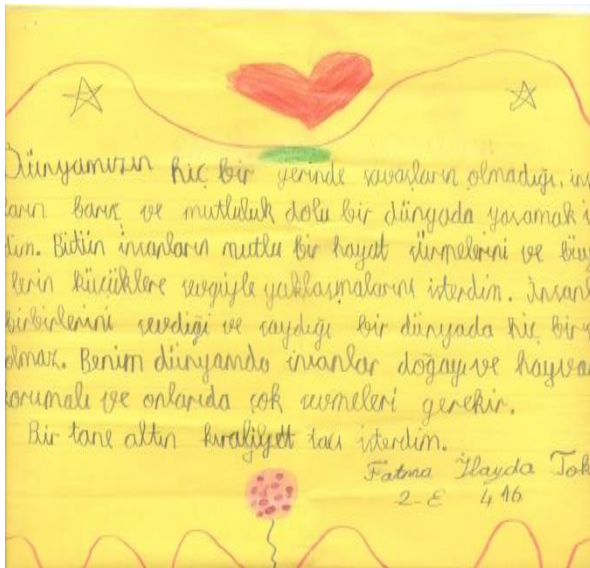 Dünyamızın hiç bir yerinde savaşların olmadığı, ins
ların barış ve mutluluk dolu bir dünyada yaşamak i
dim. Bütün insanların mutlu bir hayat sürmelerini ve büy
lerin küçüklere sevgiyle yaklaşmalarını isterdim. İnsanl
birbirlerini sevdiği ve saydığı bir dünyada hiç bir s
olmaz. Benim dünyamda insanlar doğayı ve hayva
korumalı ve onlarıda çok sevmeleri gerekir.
Bir tane altın kıraliyett tacı isterdim.
Fatma İlayda Tok
2-E 416